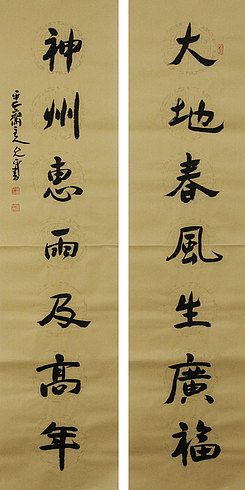 大地春風生廣福
神州惠雨及高年